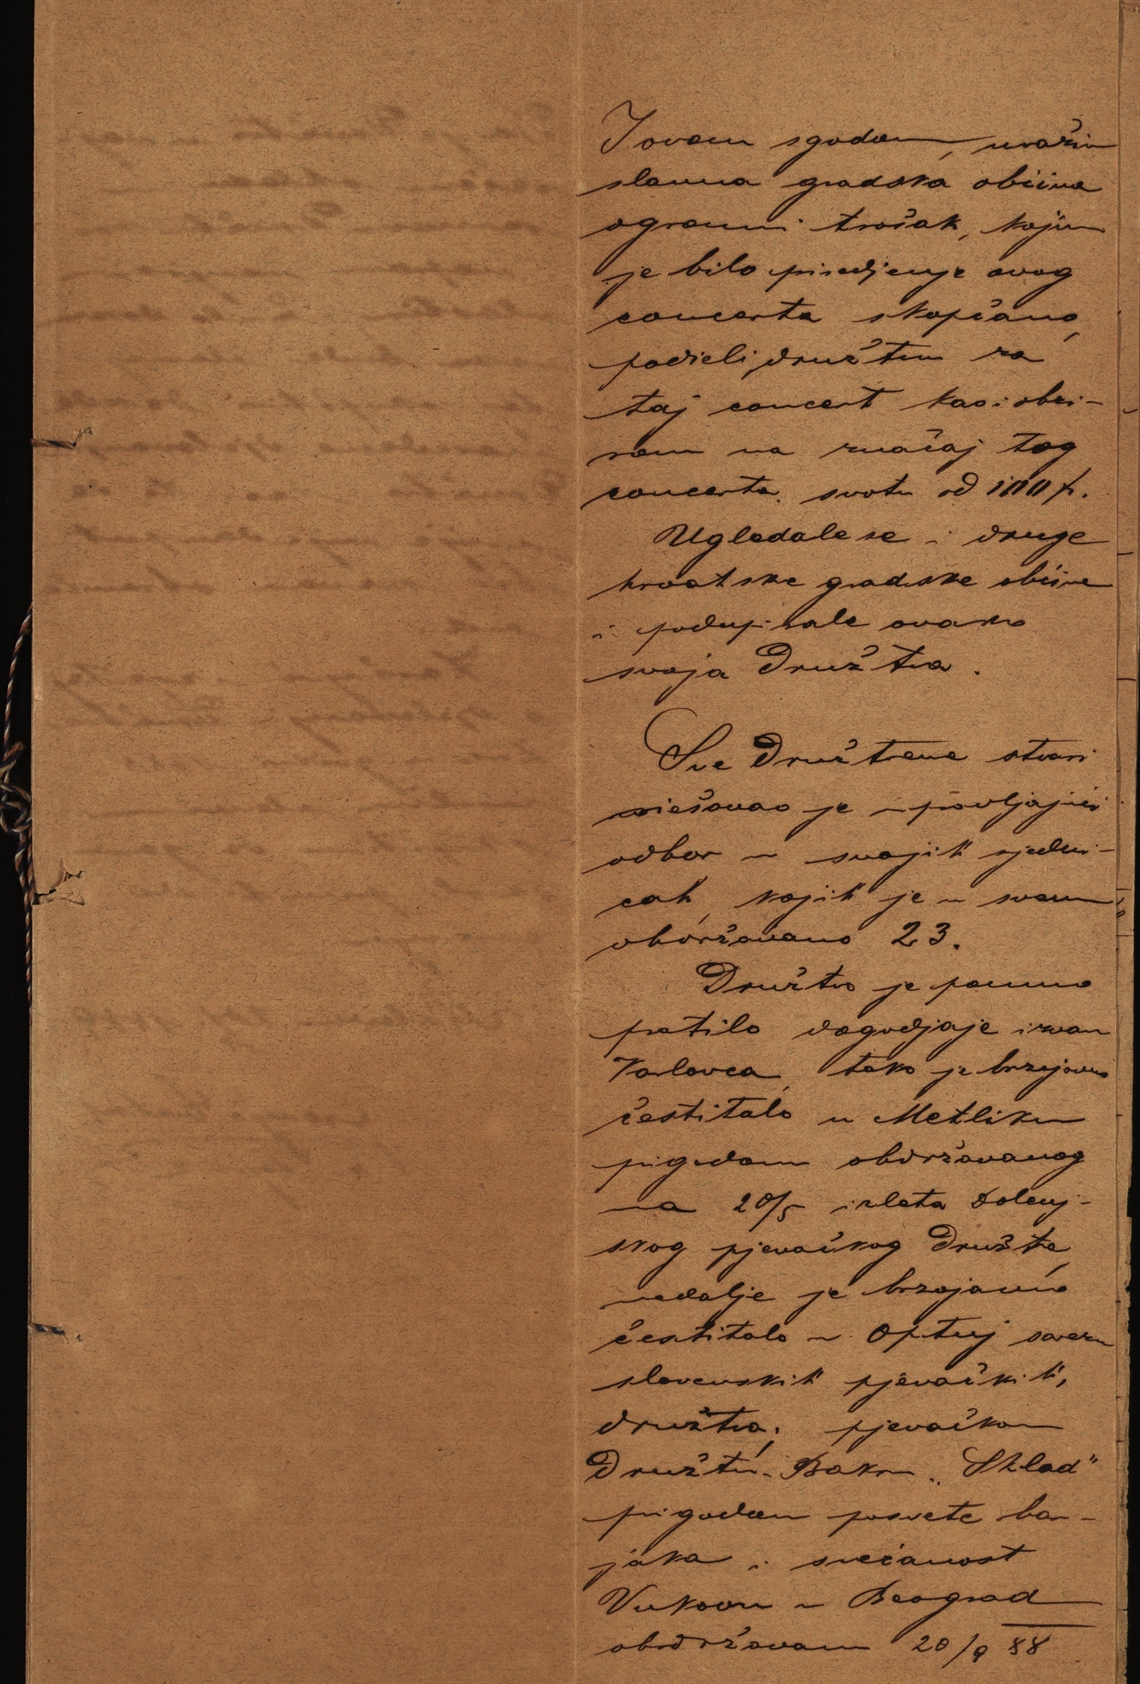 I ovom sgodom, uvaživ
slavna gradska obćina
ogromni trošak, kojim
je bilo priredjenje ovog
concerta skopčano,
podieli družtvu za
taj concert kao i obzi-
rom na značaj tog
concerta svotu od 100 f.
Ugledale se i druge
hrvatske gradske obćine
i podupirale ovako
svoja družtva.
Sve družtvene stvari
riešavao je upravljajući
odbor u svojih sjedni-
cah, kojih je u svem
obdržavano 23.
Družtvo je pomno
pratilo dogodjaje izvan
Karlovca, tako je brzojavno
čestitalo u Metliku
prigodom obdržavanog
na 20/5 izleta dolenj-
skog pjevačkog družtva,
nadalje je brzojavno
čestitalo u Optuj savezu
slovenskih pjevačkih
družtva, pjevačkom
družtvu u Bakru "Sklad"
prigodom posvete bar-
jaka i svečanost
Vukovu u Beograd
obdržavanu 20/9 88